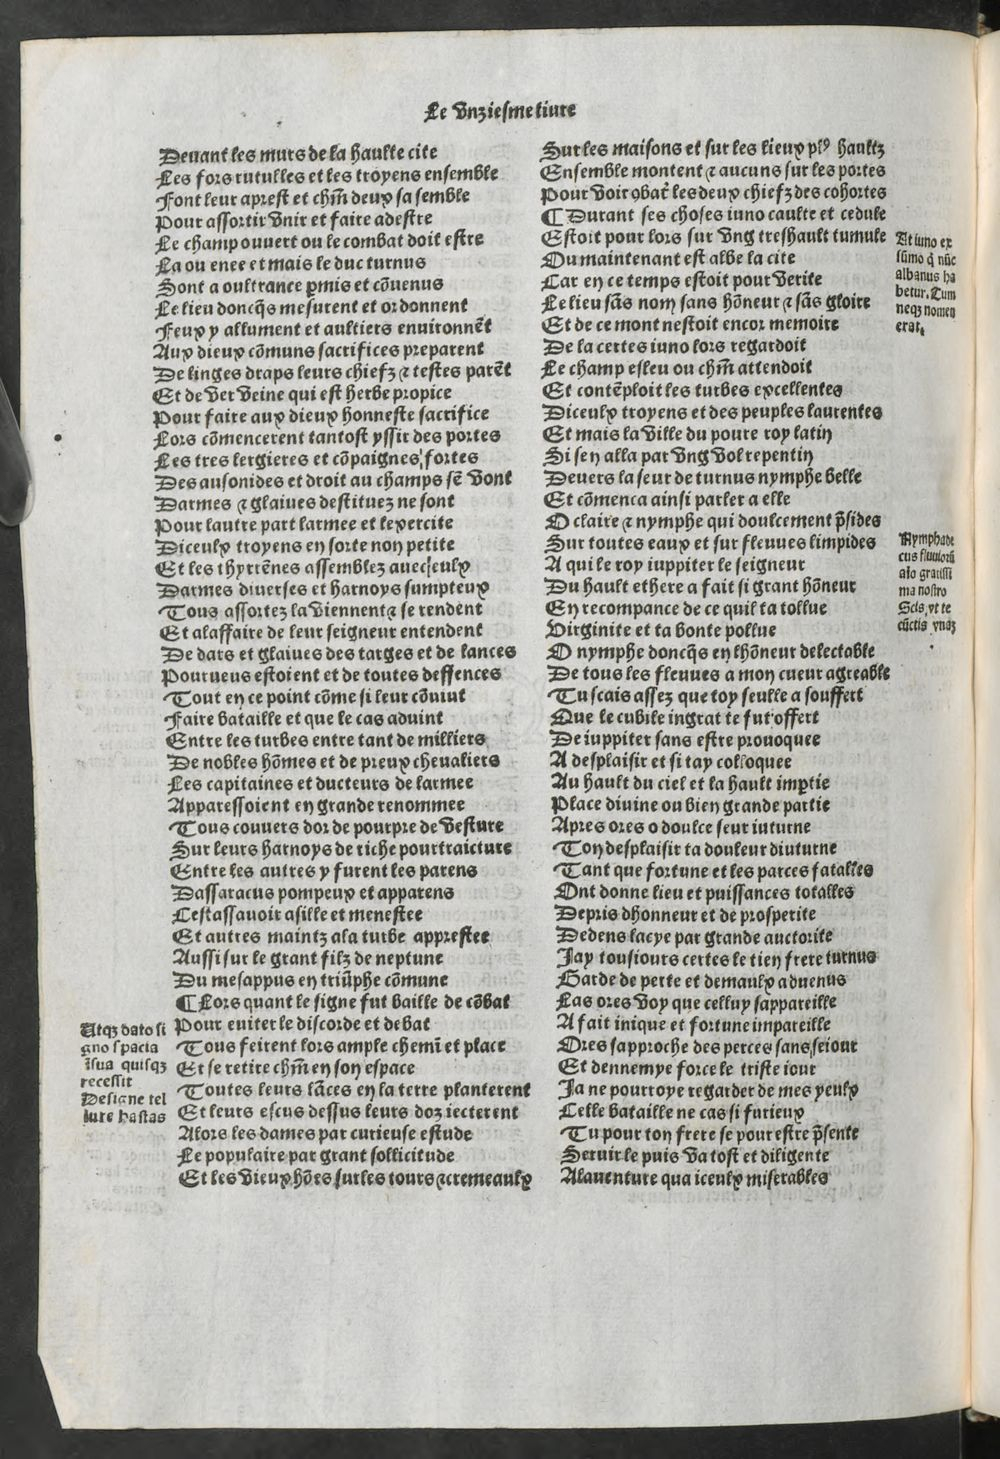 Le Vnziesme liure
Deuant les murs de la haulte cite
Les fors rutulles et les troyens ensemble
Font leur aprest et chm̃ deux sa semble
Pour assortir vnir et faire adestre
Le champ ouuert ou le combat doit estre
La ou enee et mais le duc turnus
Sont a oultrance ꝑmis et cõuenus
Le lieu doncq̃s mesurent et ordonnent
Feux y allument et aultiers enuironnẽt
Aux dieux cõmuns sacrifices preparent
De linges draps leurs chiefz ⁊ testes parẽt
Et de ver veine qui est herbe propice
Pour faire aux dieux honneste sacrifice
Lors cõmencerent tantost yssir des portes
Les tres lergieres et cõpaignes fortes
Des ausonides et droit au champs sẽ vont
Darmes ⁊ glaiues destituez ne sont
Pour lautre part larmee et lexercite
Diceulx troyens en sorte non petite
Et les thyrrẽnes assemblez auec ceulx
Darmes diuerses et harnoys sumpteux
Tous assortez la viennent ⁊ se rendent
Et alaffaire de leur seigneur entendent
De dars et glaiues des targes et de lances
Pourueus estoient et de toutes deffences
Tout en ce point cõme si leur cõuint
Faire bataille et que le cas aduint
Entre les turbes entre tant de milliers
De nobles hõmes et de preux cheualiers
Les capitaines et ducteurs de larmee
Apparessoient en grande renommee
Tous couuers dor de pourpre de vesture
Sur leurs harnoys de riche pourtraicture
Entre les autres y furent les parens
Dassaracus pompeux et apparens
Cestassauoir asille et menestee
Et autres maintz ala turbe apprestee
Aussi sur le grant filz de neptune
Du mesappus en triũphe cõmune
¶ Lors quant le signe fut baille de cõbat
Pour euiter le discorde et debat
Tous feirent lors ample chemĩ et place
Et se retire chm̃ en son espace
Toutes leurs lãces en la terre planterent
Et leurs escus dessus leurs doz iecterent
Alors les dames par curieuse estude
Le populaire par grant sollicitude
Et les vieux hõẽs sur les tours ⁊ cremeaulx
Atqꝫ dato si
gno spacia
ĩ sua quisqꝫ
recessit
Designe tel
lure hastas
Sur les maisons et sur les lieux plꝰ haultz
Ensemble montent ⁊ aucuns sur les portes
Pour voir ꝯbat̃ les deux chiefz des cohortes
¶ Durant ses choses iuno caulte et cedule
Estoit pour lors sur vng treshault tumule
Ou maintenant est albe la cite
Car en ce temps estoit pour verite
Le lieu sãs nom sans hõneur ⁊ sãs gloire
Et de ce mont nestoit encor memoire
De la certes iuno lors regardoit
Le champ esleu ou chm̃ attendoit
Et contẽploit les turbes excellentes
Diceulx troyens et des peuples laurentes
Et mais la ville du poure roy latin
Si sen alla par vng vol repentin
Deuers la seur de turnus nymphe belle
Et cõmenca ainsi parler a elle
O claire ⁊ nymphe qui doulcement p̃sides
Sur toutes eaux et sur fleuues limpides
A qui le roy iuppiter le seigneur
Du hault ethere a fait si grant hõneur
En recompance de ce quil ta tollue
Virginite et ta bonte pollue
O nymphe doncq̃s en lhõneur delectable
De tous les fleuues a mon cueur agreable
Tu scais assez que toy seulle a souffert
Que le cubile ingrat te fut offert
De iuppiter sans estre prouoquee
A desplaisir et si tay colloquee
Au hault du ciel et la hault imꝑtie
Place diuine ou bien grande partie
Apres ores o doulce seur iuturne
Ton desplaisir ta douleur diuturne
Tant que fortune et les parces fatalles
Ont donne lieu et puissances totalles
Depris dhonneur et de prosperite
Dedens lacye par grande auctorite
Jay tousiours certes le tien frere turnus
Garde de perte et demaulx aduenus
Las ores voy que celluy sappareille
A fait inique et fortune impareille
Ores sapproche des perces sans seiour
Et dennemye force le triste iour
Ja ne pourroye regarder de mes yeulx
Celle bataille ne cas si furieux
Tu pour ton frere se pour estre p̃sente
Seruir le puis va tost et diligente
Alauenture qua iceulx miserables
At iuno ex
sũmo q̃ nũc
albanus ha
betur. Tum
neqꝫ nomen
erat.
Nymphade
cus fluuiorũ
aĩo gratissi
ma nostro
Scis vt te
cũctis vnaꝫ